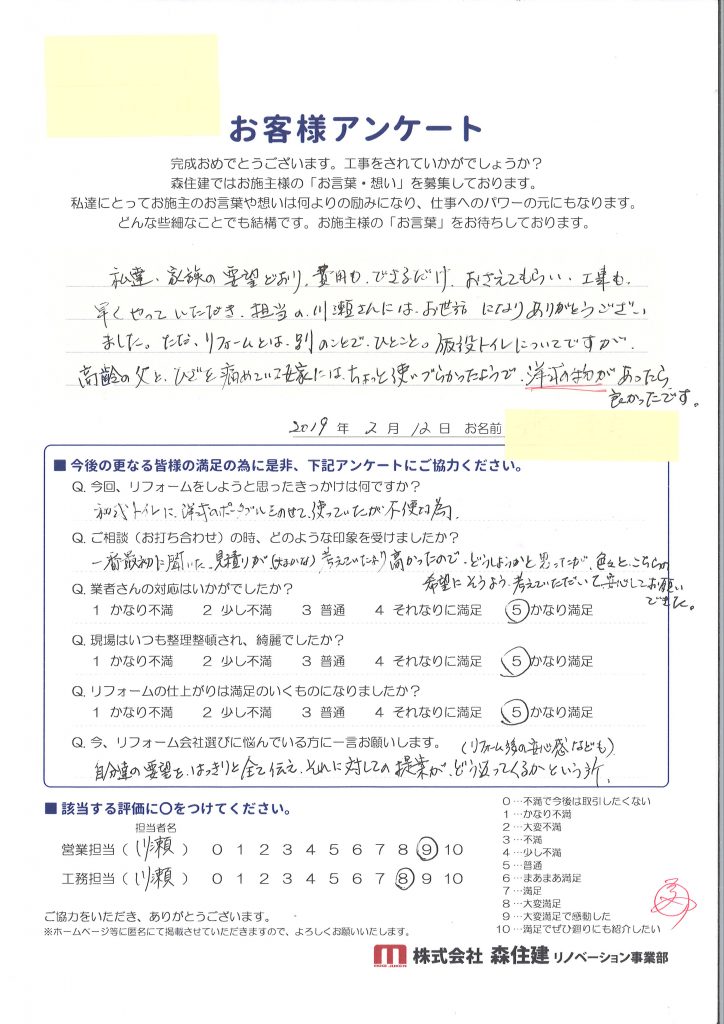 お客様アンケート
完成おめでとうございます。工事をされていかがでしょうか？
森住建ではお施主様の「お言葉・想い」を募集しております。
私達にとってお施主のお言葉や想いは何よりの励みになり、仕事へのパワーの元にもなります。
どんな些細なことでも結構です。お施主様の「お言葉」をお待ちしております。
私達、家族の要望どおり、費用も、できるだけ、おさえてもらい、工事も、
早くやっていただき、担当の川瀬さんには、お世話になりありがとうござい
ました。ただ、リフォームとは、別のことで、ひとこと。施設トイレについてですが、
高齢の父と、ひざを痛めている家には、ちょっと使いづらかったようで、洋式の物があったら
良かったです。
2019 年 2 月 12 日 お名前
■ 今後の更なる皆様の満足の為に是非、下記アンケートにご協力ください。
Q. 今回、リフォームをしようと思ったきっかけは何ですか？
和式トイレに、洋式のポータブルをのせて、使っていたが不便な為、
Q. ご相談（お打ち合わせ）の時、どのような印象を受けましたか？
一番最初に聞いた、見積りが（大まかな）考えていたより高かったので、どうしようかと思ったが、色々と、こちらの
希望にそうよう、考えていただいて、安心してお願い
できた。
Q. 業者さんの対応はいかがでしたか？
1 かなり不満 2 少し不満 3 普通 4 それなりに満足 5 かなり満足
Q. 現場はいつも整理整頓され、綺麗でしたか？
1 かなり不満 2 少し不満 3 普通 4 それなりに満足 5 かなり満足
Q. リフォームの仕上がりは満足のいくものになりましたか？
1 かなり不満 2 少し不満 3 普通 4 それなりに満足 5 かなり満足
Q. 今、リフォーム会社選びに悩んでいる方に一言お願いします。（リフォーム後の安心感なども）
自分達の要望を、はっきりと全て伝え、それに対しての提案が、どう返ってくるかという所、
■ 該当する評価に〇をつけてください。
担当者名
営業担当（ 川瀬 ） 0 1 2 3 4 5 6 7 8 9 10
工務担当（ 川瀬 ） 0 1 2 3 4 5 6 7 8 9 10
0…不満で今後は取引したくない
1…かなり不満
2…大変不満
3…不満
4…少し不満
5…普通
6…まあまあ満足
7…満足
8…大変満足
9…大変満足で感動した
10…満足でぜひ廻りにも紹介したい
ご協力をいただき、ありがとうございます。
※ホームページ等に匿名にて掲載させていただきますので、よろしくお願いいたします。
株式会社 森住建 リノベーション事業部